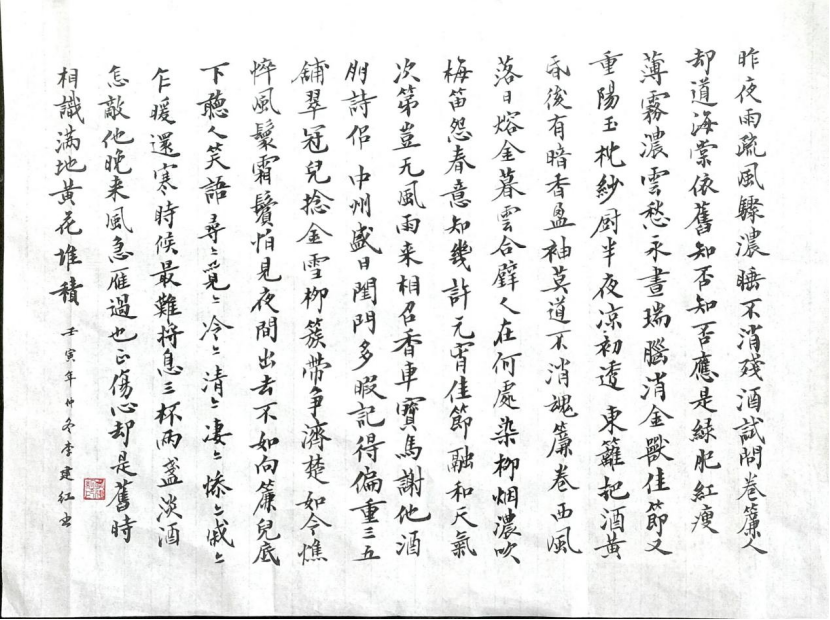 昨夜雨疏風驟濃睡不消殘酒試問卷簾人
却道海棠依舊知否知否應是綠肥紅瘦
薄霧濃雲愁永晝瑞腦消金獸佳節又
重陽玉枕紗厨半夜凉初透東籬把酒黄
昏後有暗香盈袖莫道不消魂簾卷西風
落日熔金暮雲合璧人在何處染柳烟濃吹
梅笛怨春意知幾許元宵佳節融和天氣
次第豈无風雨来相召香車寶馬謝他酒
朋詩侣中州盛日閨門多暇記得偏重三五
鋪翠冠兒捻金雪柳簇带争濟楚如今憔
悴風鬟霜鬢怕見夜間出去不如向簾兒底
下聽人笑語尋〻覓〻冷〻清〻凄〻慘〻戚〻
乍暖還寒時候最難将息三杯兩盞淡酒
怎敵他晚来風急雁過也正傷心却是舊時
相識满地黄花堆積 壬寅年仲冬李建红书